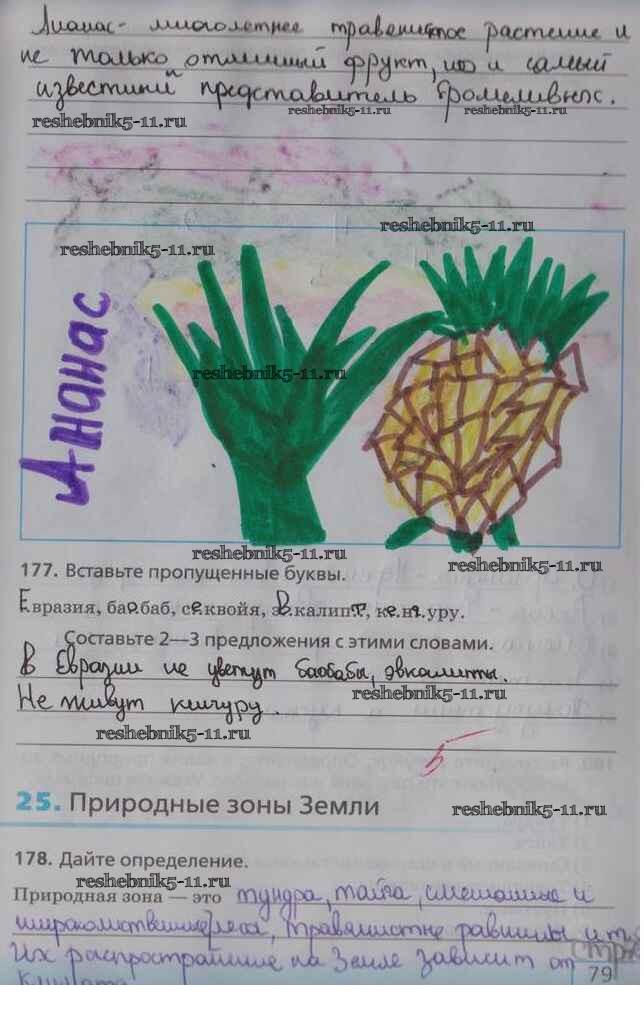 Ананас- многолетнее травенистое растение и
не только отличный фрукт, но и самый
известний представитель бромеливых.
reshebnik5-11.ru reshebnik5-11.ru reshebnik5-11.ru
reshebnik5-11.ru
reshebnik5-11.ru
Ананас
reshebnik5-11.ru
reshebnik5-11.ru
reshebnik5-11.ru
177. Вставьте пропущенные буквы.
Евразия, баобаб, секвойя, эвкалипт, кенгуру.
Составьте 2—3 предложения с этими словами.
В Евразии не цветут баобабы, эвкалипты.
reshebnik5-11.ru
Не живут кенгуру.
reshebnik5-11.ru
5
25. Природные зоны Земли
reshebnik5-11.ru
178. Дайте определение.
reshebnik5-11.ru
Природная зона — это тундра, тайга, смешанные и
широколиственные леса, травянистые равнины и т.
Их распространение на Земле зависит от
климата
79